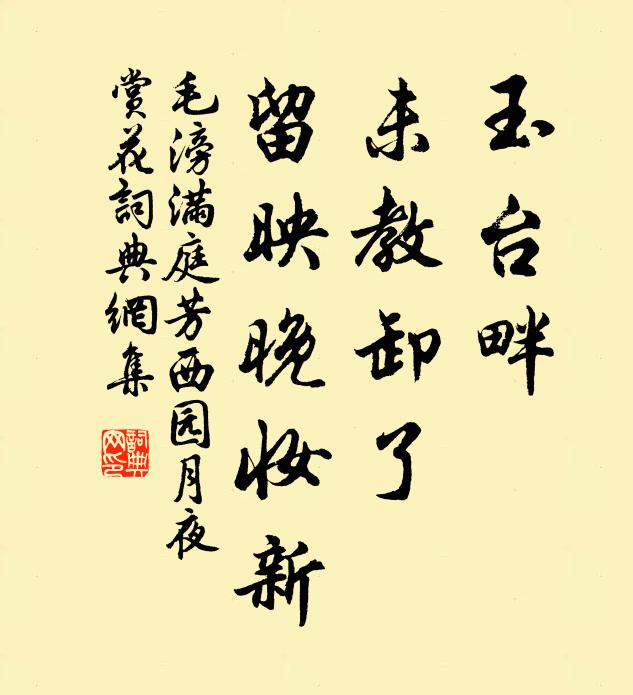 玉台畔
未教卸了
留映晚妆新
毛滂满庭芳西园月夜
赏花詞典網集
詞典网印